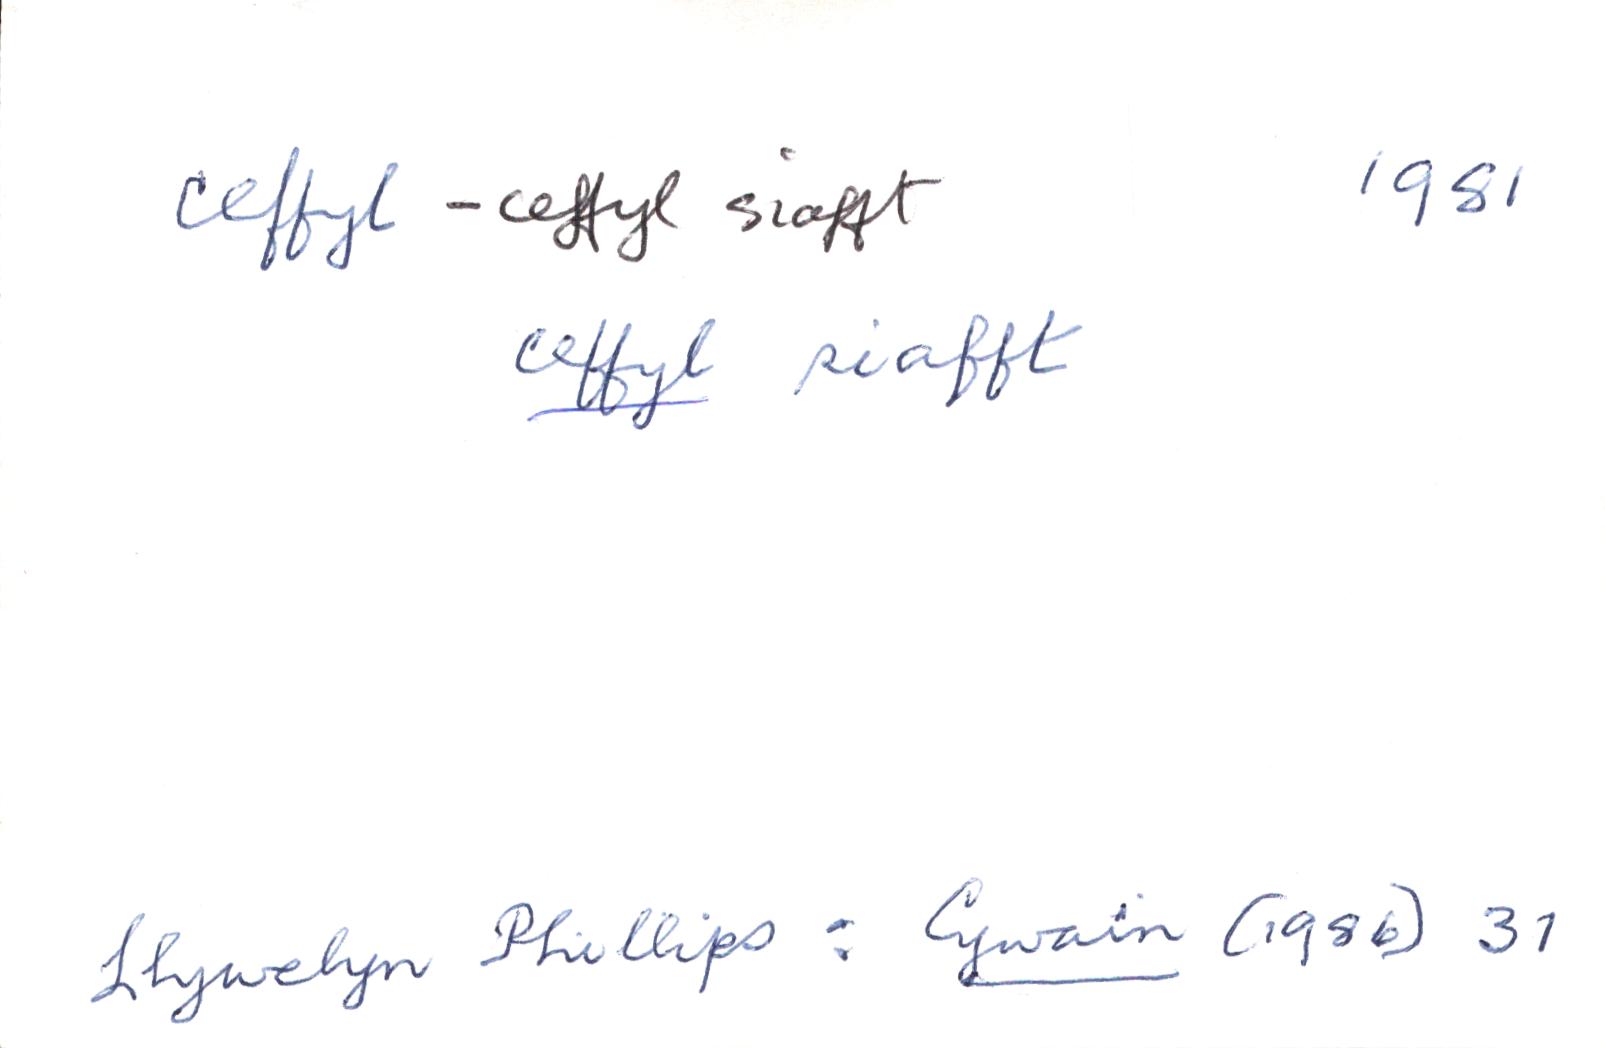 ceffyl - ceffyl siafft 1981
ceffyl siafft
Llywelyn Phillips : Cywain (1986) 31